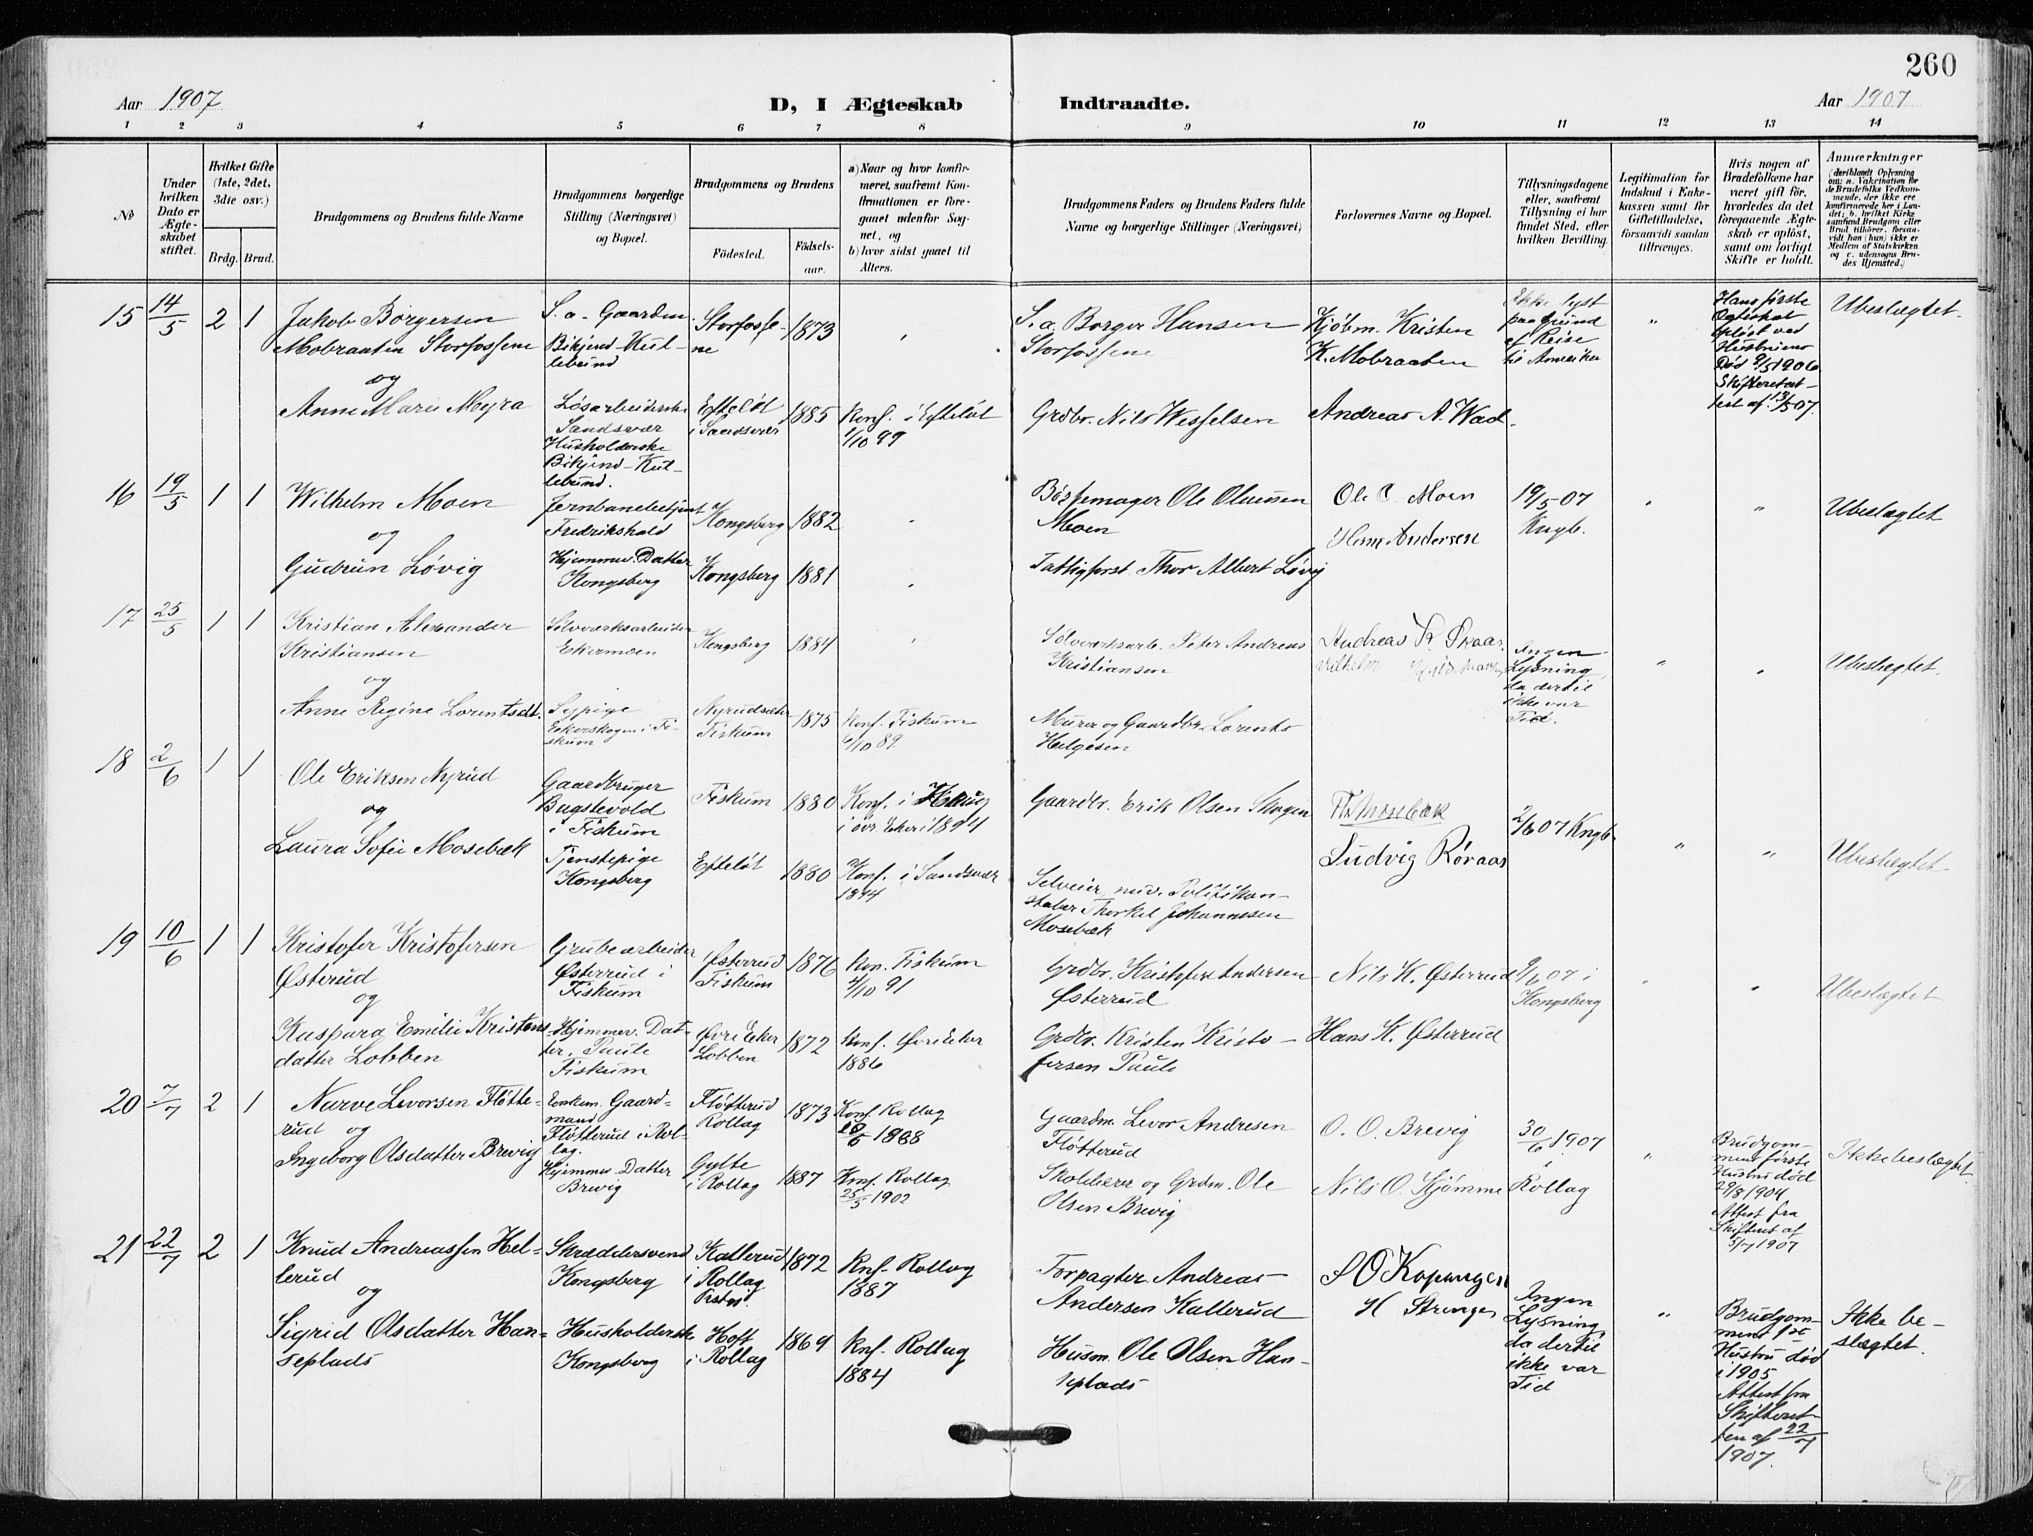 260
Aar 1907
D, I Ægteskab
Indtraadte.
Aar 1907
1 2 3 4 5 6 7 8 9 10 11 12 13 14
No
Under hvilken Dato er Ægteskabet stiftet.
Hvilket Gifte (1ste, 2det, 3die osv.)
Brdg. Brud.
Brudgommens og Brudens fulde Navne
Brudgommens borgerlige Stilling (Næringsvei) og Bopæl.
Brudgommens og Brudens
Fødested.
Fødsels-aar.
a) Naar og hvor konfirmeret, saafremt Konfirmationen er foregaaet udenfor Sognet, og
b) hvor sidst gaaet til Alters.
Brudgommens Faders og Brudens Faders fulde Navne og borgerlige Stillinger (Næringsvei)
Forlovernes Navne og Bopæl.
Tillysningsdagene eller, saafremt Tillysning ei har fundet Sted, efter hvilken Bevilling.
Legitimation for Indskud i Enkekassen samt for Giftetilladelse, forsaavidt saadan tiltrænges.
Hvis nogen af Brudefolkene har været gift før, hvorledes da det foregaaende Ægteskab er opløst, samt om lovligt Skifte er holdt.
Anmærkninger
(deriblandt Oplysning om: a. Vakcination for de Brudefolks Vedkommende, der ikke ere konfirmerede her i Landet; b. hvilket Kirkesamfund Brudgom eller Brud tilhører, forsaavidt han (hun) ikke er Medlem af Statskirken og c. udensogns Brudes Hjemsted.)
15 14/5 2 1
Jakob Børgersen
Mobraaten Storfossene
og
Anne Marie Myra
S. a. Gaardm.
Bikjend-Kul-
lebund
Løsarbeiderske
Sandsvær
Husholderske
Bikjend-Kul-
lebund.
Storfosse-
ne
1873
Efteløt
i Sandsvær
1885
Konf. i Efteløt
1/10 99
S. a. Borger Hansen
Storfossene
Grdbr. Nils Wesselsen
Kjøbm. Kristen
K. Mobraaten
Andreas A. Wad.
Ikke lyst
paa Grund
af Reise
til Amerika
Hans første
Ægteskab
opløst ved
Hustruens
Død 9/5 1906
Skifteret-
test af 13/5 07.
Ubeslægtet.
16 19/5 1 1
Wilhelm Moen
og
Gudrun Løvig
Jernbanebetjent
Fredrikshald
Hjemmev. Datter
Kongsberg
Kongsberg 1882
Kongsberg 1881
Bøssemager Ole Olausen
Moen
Fattigforst. Thor Albert Løvig
Ole C. Moen
Hans Andersen
19/5 07
Kngb.
Ubeslægtet
17 25/5 1 1
Kristian Alexander
Kristiansen
og
Anne Regine Lorentsdt.
Sølvværksarbeider
Ekermoen
Sypige
Eckerskogen i Fi-
skum
Kongsberg 1884
Nyrudsæter
Fiskum
1875
Konf. Fiskum
6/10 89.
Sølvverksarb. Peter Andreas
Kristiansen
Murer og Gaardbr. Lorents
Helgesen
Andreas K. Skaar.
Vilhelm
Ingen
Lysning,
da dertil
ikke var
Tid.
Ubeslægtet.
18 2/6 1 1
Ole Eriksen Nyrud
og
Laura Sofie Mosebæk
Gaardbruger
Bugstevold
i Fiskum
Tjenstepige
Kongsberg
Fiskum 1880
Konf. i Haug
i øvr. Eker i 1894
Efteløt 1880
Konf. i Sandsvær
1894
Gaardbr. Erik Olsen Skogen
Selveier, nuv. Politikon-
stabel Thorkel Johannesen
Mosebæk
Th. Mosebæk
Ludvig Røraas
2/6 07 Kngb.
Ubeslægtet
19 10/6 1 1
Kristofer Kristofersen
Østerud
og
Kaspara Emilie Kristens-
datter Lobben
Grubearbeider
Østerrud i
Fiskum
Hjemmev. Dat-
ter. Paule
Fiskum
Østerrud
Fiskum
1876
Kon. Fiskum
4/10 91
Øvre Eker
Lobben
1872
Konf. Øvre Eker
1886
Grdbr. Kristofer Andersen
Østerrud
Grdbr. Kristen Kristo-
fersen Paule
Nils K. Østerrud
Hans K. Østerrud
9/6 07 i
Kongsberg
Ubeslægtet
20 7/7 2 1
Narve Levorsen Fløtte-
rud og
Ingeborg Olsdatter Brevig
Enkem. Gaard-
mand
Fløtterud i Rol-
lag.
Hjemmev. Datter
Brevig
Fløtterud
Rollag
1873
Konf. Rollag
1888
Gylte
i Rollag
1887
Konf. Rollag
25/5 1902
Gaardm. Levor Andresen
Fløtterud
Skolelærer og Grdm. Ole
Olsen Brevig
O. O. Brevig
Nils O. Hjømme
30/6 1907
Rollag
Brudgom-
mens første
Hustru død
29/8 1904
Attest fra
Skifteret af
5/7 1907
Ikke beslægtet
21 22/7 2 1
Knud Andreassen Hel-
lerud
og
Sigrid Olsdatter Han-
seplads
Skræddersvend
Kongsberg
Husholderske
Kongsberg
Kallerud
i Rollag
1872
Knf. Rollag
1887
Hoft
i Rollag
1869
Knf. Rollag
1884
Forpagter Andreas
Andersen Kallerud
Husm. Ole Olsen Han-
seplads
S O Kopangen
H Strenge
Ingen
Lysning,
da dertil
ikke var
Tid
Brudgom-
mens
Hustru død
i 1905
Attest fra
Skifteret-
ten af 22/7
1907.
Ikke be-
slægtet.